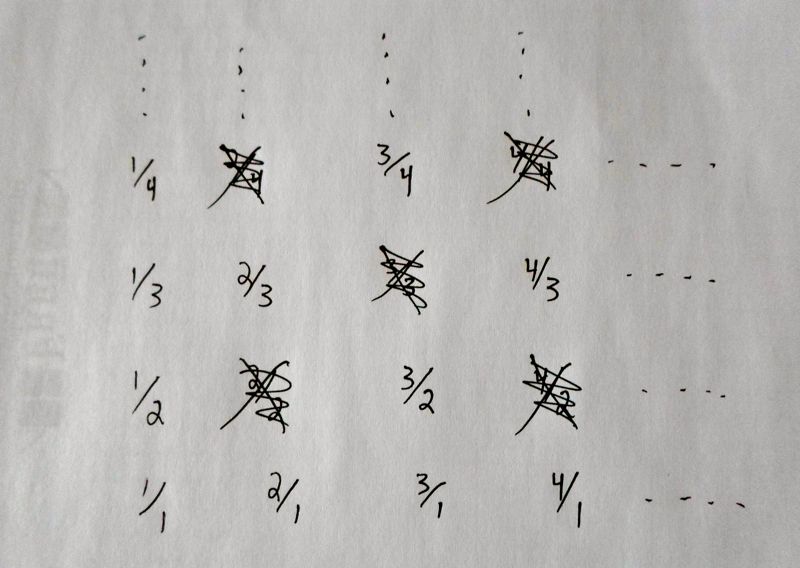 1/4 3/4
1/3 2/3 4/3
1/2 3/2
1/1 2/1 3/1 4/1